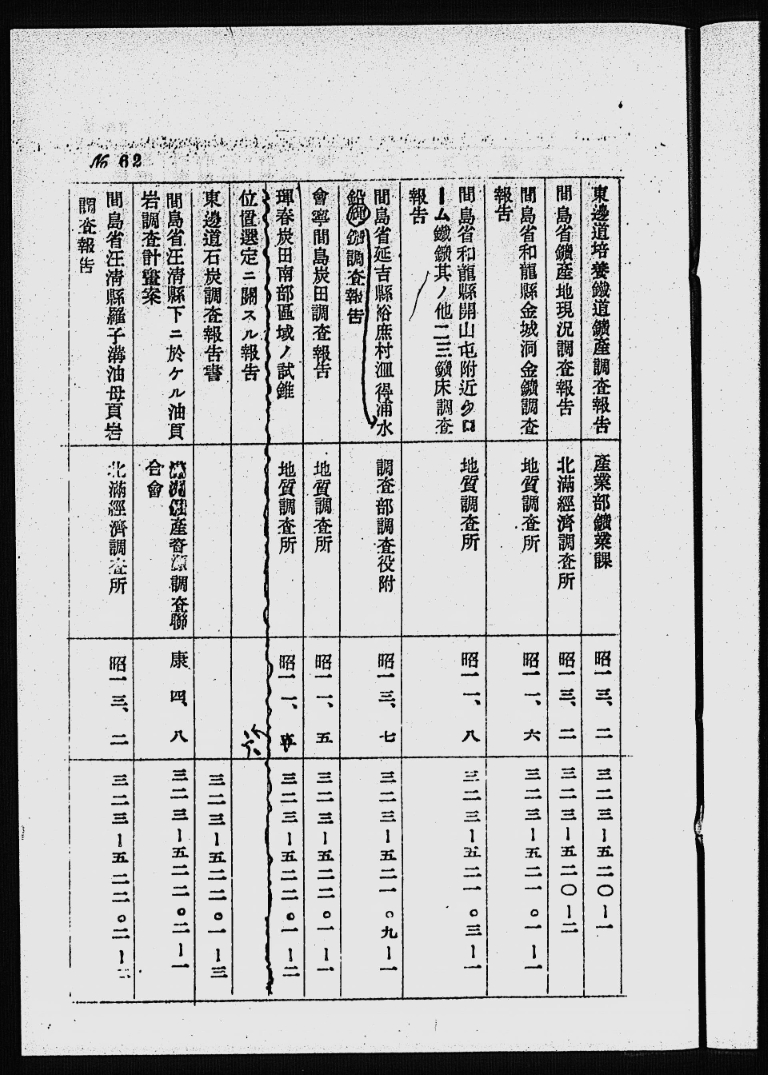 № 62
東邊道培養鐵道鑛產調査報告
產業部鑛業課
昭一三、二
三二三ー五二〇ー一
間島省鑛產地現況調査報告
北滿經濟調査所
昭一三、二
三二三ー五二〇ー二
間島省和龍縣金城洞金鑛調査
報告
地質調査所
昭一一、六
三二三ー五二一。一ー一
間島省和龍縣開山屯附近クロ
ーム鐵鑛其ノ他二三鑛床調査
報告
地質調査所
昭一一、八
三二三ー五二一。三ー一
間島省延吉縣裕庶村洄得浦水
鉛鑛調査報告
調査部調査役附
昭一三、七
三二三ー五二一。九ー一
會寧間島炭田調査報告
地質調査所
昭一一、五
三二三ー五二二。一ー一
琿春炭田南部區域ノ試錐
位置選定ニ關スル報告
地質調査所
昭一一、
三二三ー五二二。一ー二
東邊道石炭調査報告書
三二三ー五二二。一ー三
間島省汪淸縣下ニ於ケル油頁
岩調査計畫案
產資源調査聯
合會
康四、八
三二三ー五二二。二ー一
間島省汪淸縣羅子溝油母頁岩
調査報告
北滿經濟調査所
昭一三、二
三二三ー五二二。二ー二